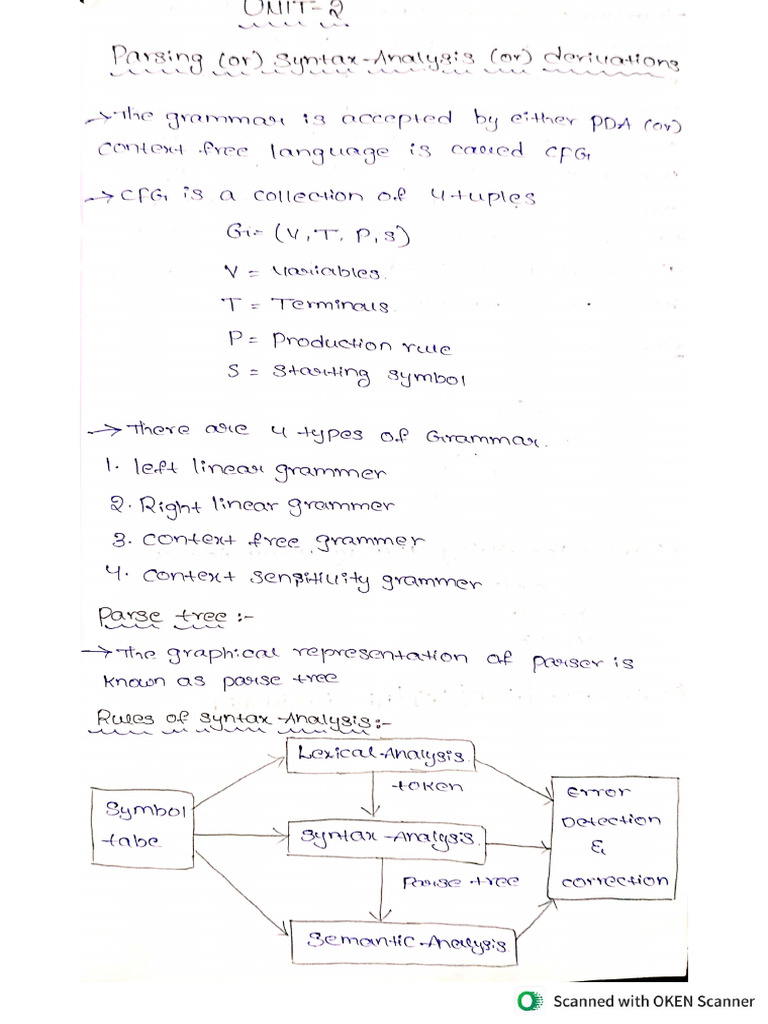 UNIT-2
Parsing (or) Syntax-Analysis (or) derivations
→ The grammar is accepted by either PDA (or)
context free language is called CFG
→ CFG is a collection of 4 tuples
G = (V, T, P, S)
V = Variables.
T = Terminals.
P = Production rule
S = Starting symbol
→ There are 4 types of Grammar.
1. left linear grammer
2. Right linear grammer
3. context free grammer
4. context sensitivity grammer
Parse tree :-
→ The graphical representation of parser is
known as parse tree
Rules of syntax-Analysis:-
Lexical-Analysis.
token
Error
Symbol
Detection
tabe
Syntax-Analysis.
&
Parse tree
correction
Semantic-Analysis
Scanned with OKEN Scanner